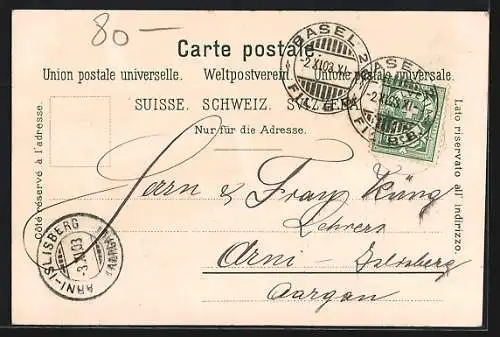 80 –
Carte postale.
Union postale universelle. Weltpostverein. Unione postale universale.
SUISSE. SCHWEIZ. SVIZZERA.
Nur für die Adresse.
Côté réservé à l'adresse.
Lato riservato all' indirizzo.
BASEL 2
-2.XI.03.XI-
FIL. B.
BASEL 2
-2.XI.03.XI-
FIL. B.
Herrn & Frau Küng
Lehrers
Arni - Islisberg
Aargau
ARNI-ISLISBERG
-3.XI.03